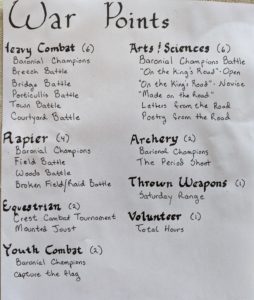 War Points
Heavy Combat (6)
Baronial Champions
Breech Battle
Bridge Battle
Portcullis Battle
Town Battle
Courtyard Battle
Rapier (4)
Baronial Champions
Field Battle
Woods Battle
Broken Field/Raid Battle
Equestrian (2)
Crest Combat Tournament
Mounted Joust
Youth Combat (2)
Baronial Champions
Capture the Flag
Arts / Sciences (6)
Baronial Champions Battle
"On the King's Road" - Open
"On the King's Road" - Novice
"Made on the Road"
Letters from the Road
Poetry from the Road
Archery (2)
Baronial Champions
The Period Shoot
Thrown Weapons (1)
Saturday Range
Volunteer (1)
Total Hours